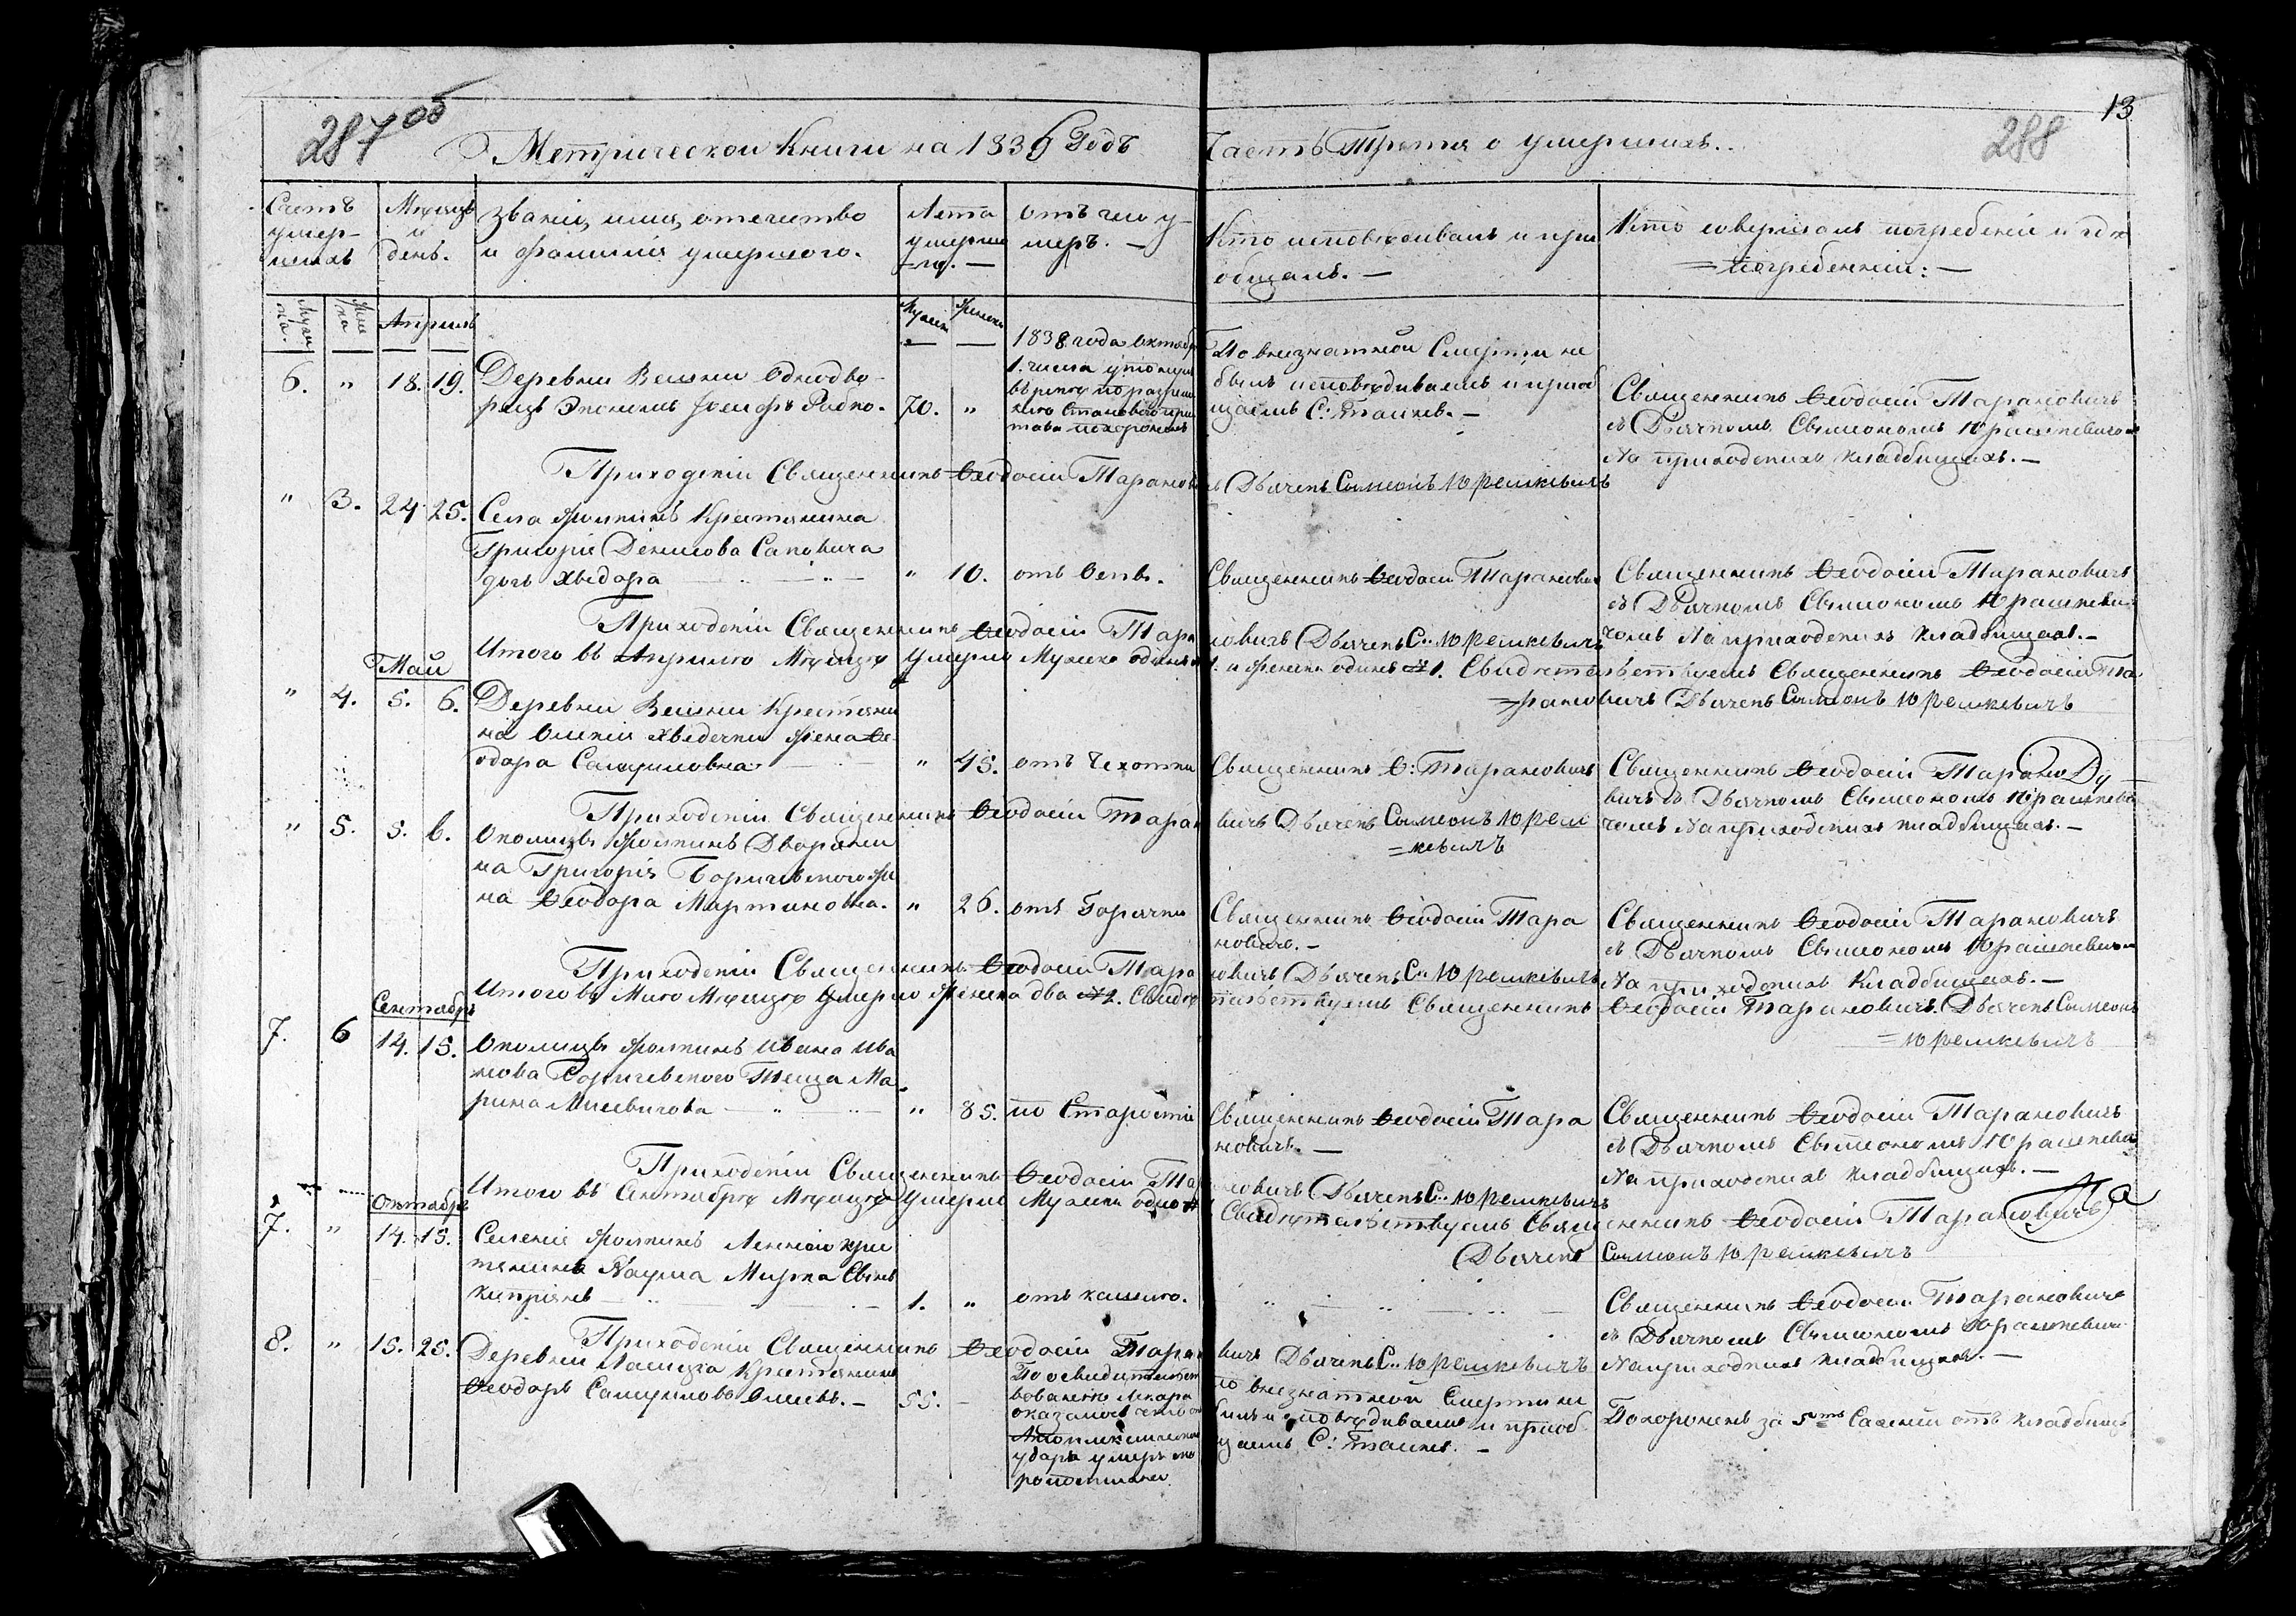 287 об
Метрической Книги на 1839 Годъ
Часть Третія о умершихъ.
13
288
Счетъ умер-
шихъ
Мѣсяцъ и день.
званіе, имя, отечество
и фамилія умершого.
Лета умерша-
го.
отъ чего у-
меръ.
Кто исповѣдовалъ и при
общалъ.
Кто совершалъ погребеніе и гдѣ
погребенніи:
Апрель
6. " 18. 19. Деревни Велжки Однодво-
рецъ
70. "
1838 года Октобр
1. числа
По внезапной Смерти не
былъ исповѣдываемъ и приоб
щаемъ С: Таинъ.
Священникъ Ѳеодосій Тарановичъ
съ Дьячкомъ Сѵмеономъ Юрашкевичом
На приходскихъ кладбищахъ.
Приходскій Священникъ Ѳеодосій Таранович Дьячекъ Сѵмеонъ Юрешкевичъ
" 3. 24 25. Села Крестянина
Григорія Денисова Саповича
дочь Хведора " 10. отъ Оспы.
Священникъ Ѳеодосій Таранович
Священникъ Ѳеодосій Тарановичъ
съ Дьячкомъ Сѵмеономъ Юрашкеви-
чомъ На приходскихъ кладбищахъ.
Приходскій Священникъ Ѳеодосій Тарановичъ Дьячекъ С: Юрешкевичъ
Итого въ Апрелѣ Мѣсяцѣ Умерло Мужска одинъ 1. и женска одинъ 1. Свидетельствуемъ Священникъ Ѳеодосій Та-
рановичъ Дьячекъ Сѵмеонъ Юрешкевичъ
Май
" 4. 5. 6. Деревни Велжки Крестяни
на жена Ѳе
одора Самуиловна " 45. отъ Чехотки
Священникъ Ѳ: Тарановичъ
Священникъ Ѳеодосій Тарано
вичъ съ Дьячкомъ Сѵмеономъ Юрашкеви
чомъ На приходскихъ кладбищахъ.
Приходскій Священникъ Ѳеодосій Таран вичъ Дьячекъ Сѵмеонъ Юреш
кевичъ
" 5. 5. 6. Околицы Дворяни
на Григорія Боричевского же
на Ѳеодора Мартиновна. " 26. отъ Горячки
Священникъ Ѳеодосій Тара
новичъ.
Священникъ Ѳеодосій Тарановичъ
съ Дьячкомъ Сѵмеономъ Юрашкевичом
На приходскихъ Кладбищахъ.
Приходскій Священникъ Ѳеодосій Тарановичъ Дьячекъ С: Юрешкевичъ
Итого въ Маю Мѣсяцѣ Умерло женска два 2. Свидетельствуемъ Священникъ Ѳеодосій Тарановичъ. Дьячекъ Сѵмеонъ
Юрешкевичъ
Сентябръ
7. 6 14. 15. Околицы Ивана Ива
нова Боричевского Теща Ма
рина " 85. по Старости
Священникъ Ѳеодосій Тара
новичъ.
Священникъ Ѳеодосій Тарановичъ
съ Дьячкомъ Сѵмеономъ Юрашкеви
На приходскихъ кладбищахъ.
Приходскій Священникъ Ѳеодосій Тарановичъ Дьячекъ С: Юрешкевичъ
Итого въ Сентабрѣ Мѣсяцѣ Умерло Свидетельствуемъ Священникъ Ѳеодосій Тарановичъ
Дьячекъ Сѵмеонъ Юрешкевичъ
Октябръ
7. " 14. 15. Селенія
Наума Сынъ
Кипріянъ 1. " отъ кашлю.
Священникъ Ѳеодосій Тарановичъ
съ Дьячкомъ Сѵмеономъ Юрашкевич
На приходскихъ кладбищахъ.
Приходскій Священникъ Ѳеодосій Таран вичъ Дьячекъ С: Юрешкевичъ
8. " 15. 25. Деревни Крестянинъ
Ѳеодоръ Самуиловъ 55.
По освидетельст
вованію Лекара
оказалось
удара умеръ
по внезапной Смерти не
былъ исповѣдываемъ и приоб
щаемъ С: Таинъ.
Похороненъ за 5ть Саженей отъ кладбищъ